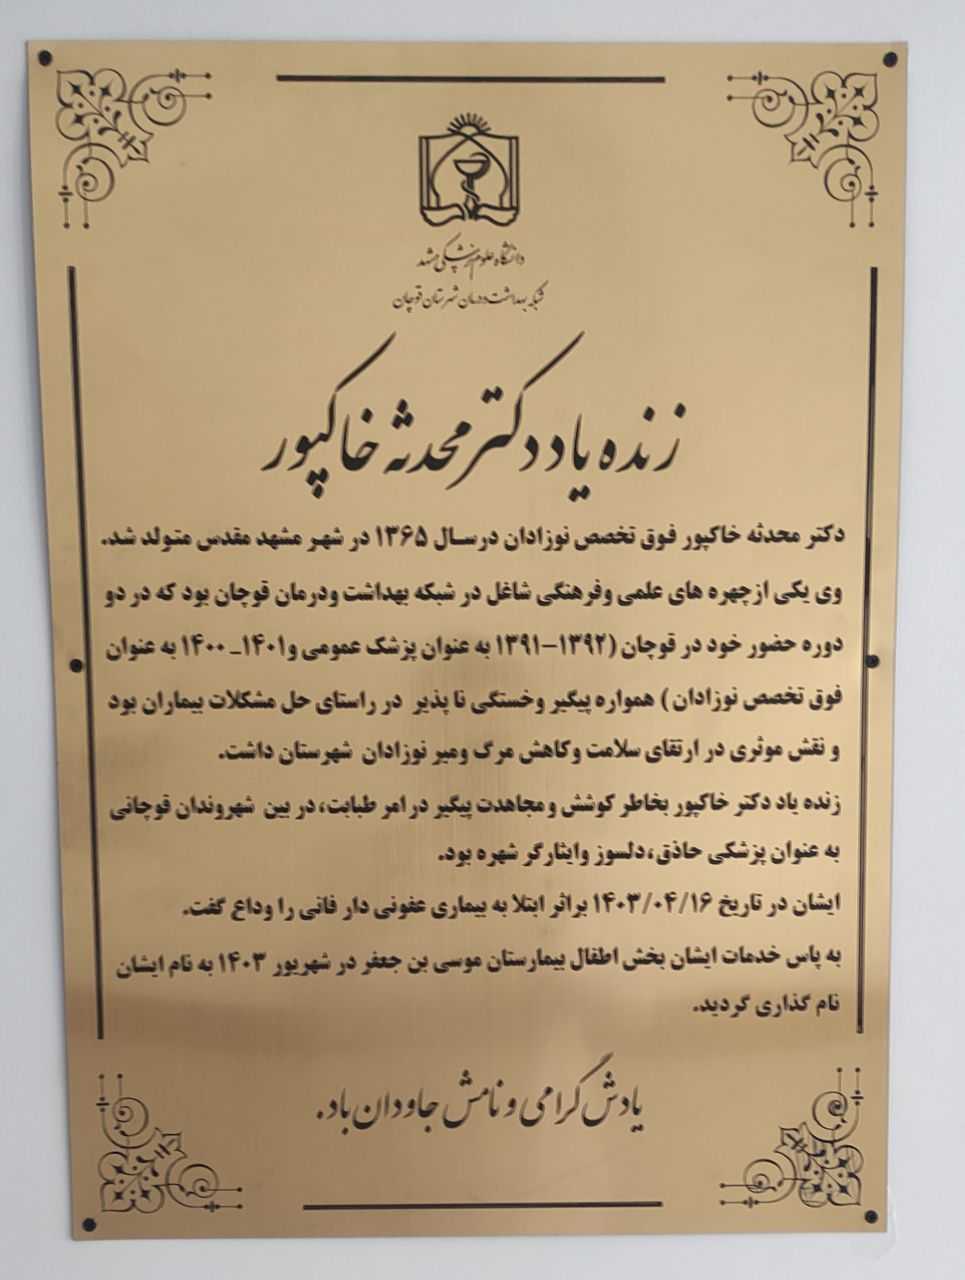 دانشگاه علوم پزشکی مشهد
شبکه بهداشت و درمان شهرستان قوچان
زنده یاد دکتر محدثه خاکپور
دکتر محدثه خاکپور فوق تخصص نوزادان درسال ۱۳۶۵ در شهر مشهد مقدس متولد شد.
وی یکی ازچهره های علمی وفرهنگی شاغل در شبکه بهداشت ودرمان قوچان بود که در دو
دوره حضور خود در قوچان (۱۳۹۲-۱۳۹۱ به عنوان پزشک عمومی و۱۴۰۱ـ۱۴۰۰ به عنوان
فوق تخصص نوزادان) همواره پیگیر وخستگی نا پذیر در راستای حل مشکلات بیماران بود
و نقش موثری در ارتقای سلامت وکاهش مرگ ومیر نوزادان شهرستان داشت.
زنده یاد دکتر خاکپور بخاطر کوشش و مجاهدت پیگیر در امر طبابت، در بین شهروندان قوچانی
به عنوان پزشکی حاذق،دلسوز وایثارگر شهره بود.
ایشان در تاریخ ۱۴۰۳/۰۴/۱۶ براثر ابتلا به بیماری عفونی دار فانی را وداع گفت.
به پاس خدمات ایشان بخش اطفال بیمارستان موسی بن جعفر در شهریور ۱۴۰۳ به نام ایشان
نام گذاری گردید.
یادش گرامی و نامش جاودان باد.